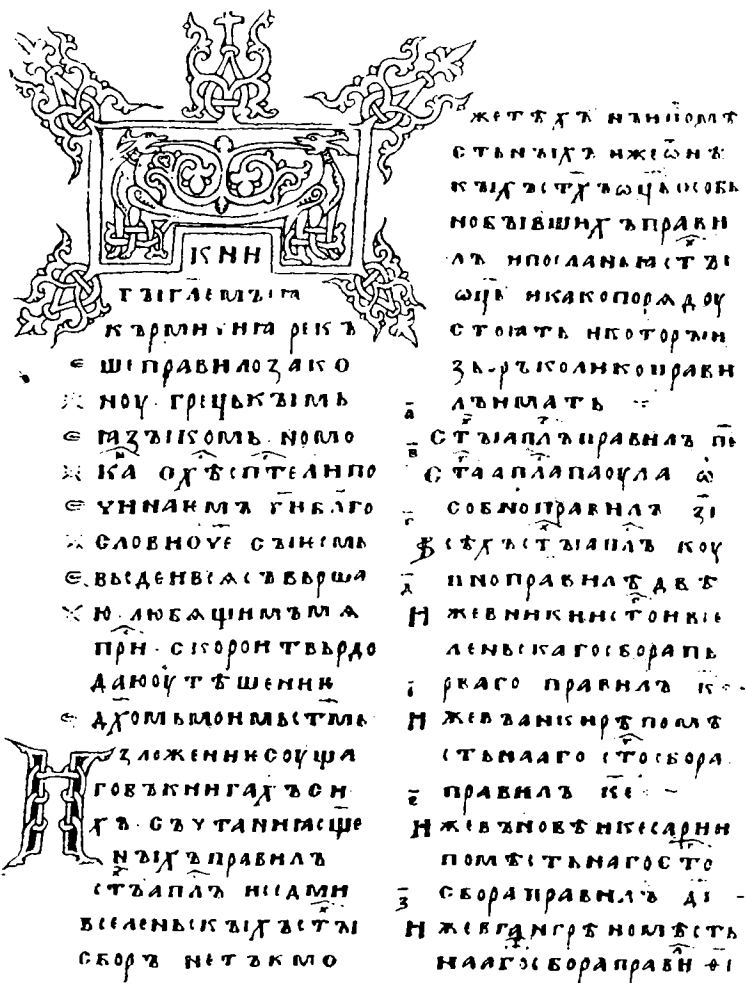 КНИ
ГЪІГЛ҃ЕМЪІꙖ
КЪРМЧИꙖ РЕКЪ
ШЕ ПРАВИЛО ЗАКО
НОУ · ГРЕЦЬКЪІМЬ
ꙖЗЪІКОМЬ · НОМО
КА
ЧИНАЕМЪ Г҃Н БЛ҃ГО
СЛОВНОЧЕ СЪІНЕМЬ
Ю · ЛЮБѦЩИМЪ МѦ
СКОРО И ТВЬРДО
ДАЮ ОУТѢШЕНИꙖ
Д҃ХОМЬ МОИМЬ СТ҃МЬ
ИЗЛОЖЕНИꙖ СОУЩА
ГО ВЪ КНИГАХЪ СИ
ХЪ · СЪЧТАНИꙖ СЩ҃Е
НЪІХЪ ПРАВИЛЪ
СТ҃Ъ АПЛ҃Ъ И СЕДМИ
ВСЕЛЕНЬСКЪІХЪ СТ҃ЪІ
СБОРЪ НЕ ТЪКМО
ЖЕ ТѢХЪ НЪ И ПОМѢ
СТЬНЪІХЪ И ЖЕ Ѿ НѢ
КЪІХЪ СТ҃ХЪ ѠЦ҃Ь ОСОБЬ
НО БЪІВШИХЪ ПРАВИ
ЛЪ И ПОСЛАНЬꙖ СТ҃ЪІ
ѠЦ҃Ь И КАКО ПОРѦДОУ
СТОꙖТЬ И КОТОРЪІИ
КОЛИКО ПРАВИ
ЛЪ ИМАТЬ
а҃ СТ҃ЪІ АПЛ҃Ъ ПРАВИЛЪ П҃Е
в҃ СТ҃АА АПЛ҃А ПАОУЛА Ѡ
СОБНО ПРАВИЛЪ З҃І
г҃ ВСѢХЪ СТ҃ЪІ АПЛ҃Ъ КОУ
д҃ ПНО ПРАВИЛѢ ДВѢ
И ЖЕ В НИКИИ СТ҃ОИ ВСЕ
ЛЕНЬСКАГО СБОРА ПЬ
РВАГО ПРАВИЛЪ К҃
И ЖЕ ВЪ АНКИРѢ ПОМѢ
СТЬНААГО СТ҃О СБОРА
ПРАВИЛЪ К҃Е
И ЖЕ ВЪ НОВѢИ КЕСАРИИ
ПОМѢСТЬНАГО СТ҃О
з҃ СБОРА ПРАВИЛЪ Д҃І
И ЖЕ В ГАНГРѢ ПОМѢСТЬ
НААГО СБОРА ПРАВИ Ѳ҃І